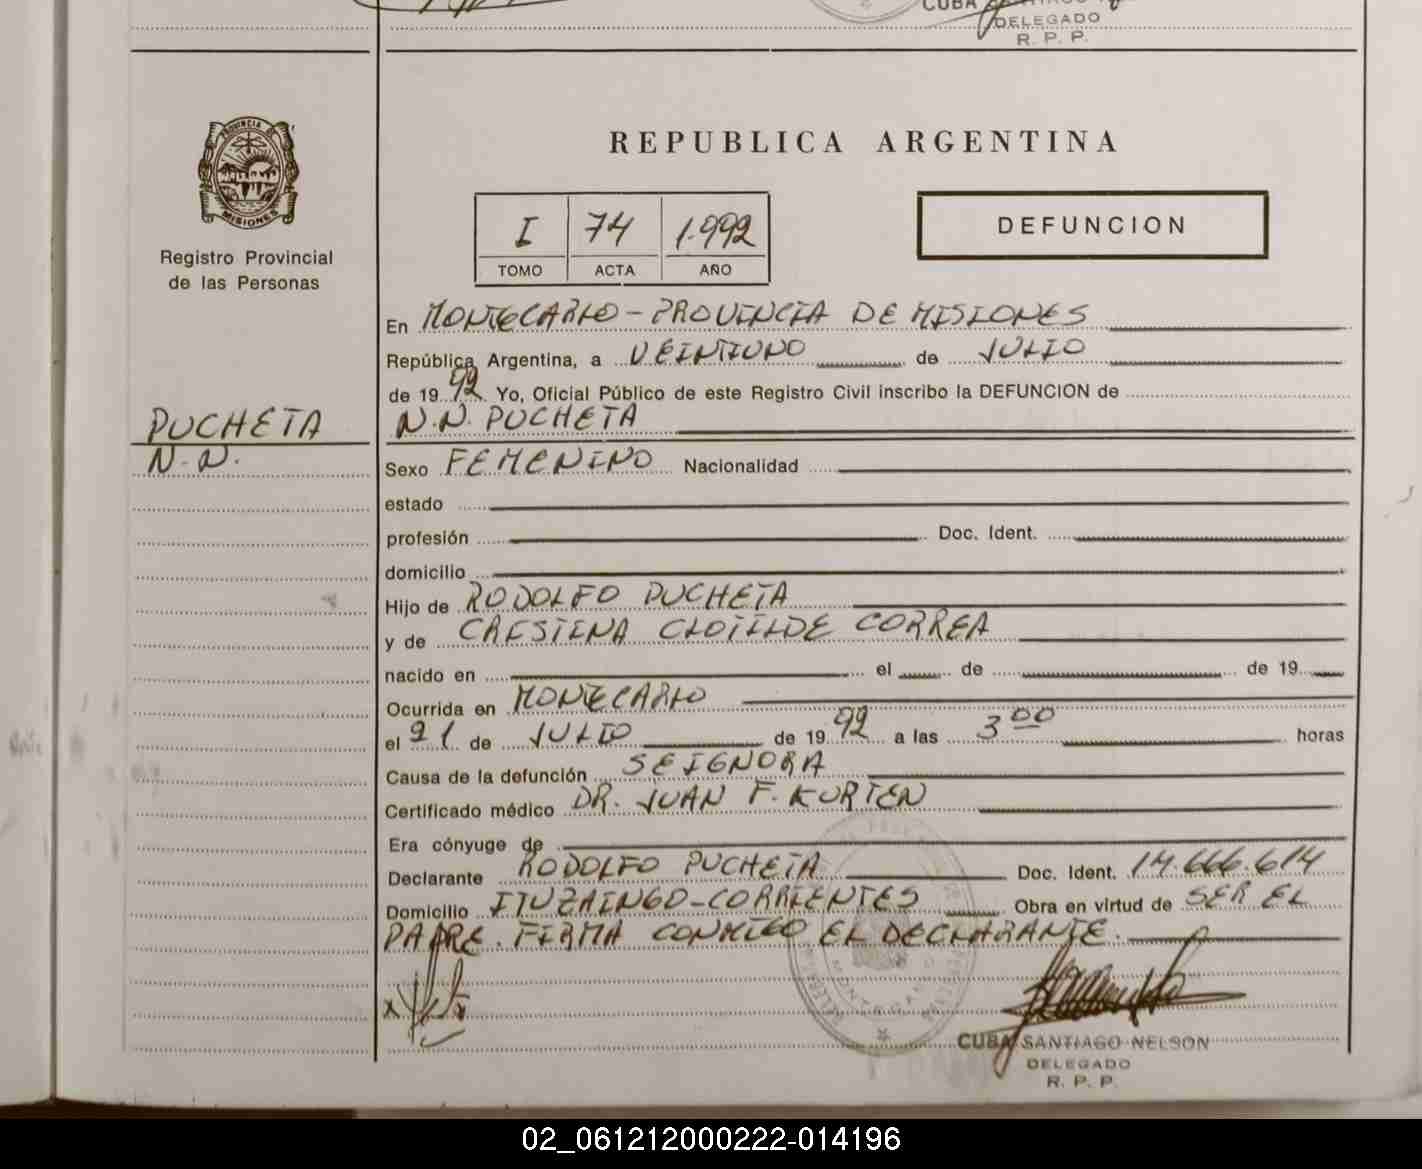 CUBA
DELEGADO
R. P. P.
PROVINCIA DE
MISIONES
Registro Provincial
de las Personas
REPUBLICA ARGENTINA
I 74 1.992
TOMO ACTA AÑO
DEFUNCION
En MONTECARLO - PROVINCIA DE MISIONES
República Argentina, a VEINTIUNO de JULIO
de 19 92 Yo, Oficial Público de este Registro Civil inscribo la DEFUNCION de
PUCHETA
N.N.
N.N. PUCHETA
Sexo FEMENINO Nacionalidad
estado
profesión Doc. Ident.
domicilio
Hijo de RODOLFO PUCHETA
y de CRESIENA CLOTILDE CORREA
nacido en el de de 19
Ocurrida en MONTECARLO
el 21 de JULIO de 19 92 a las 3 00 horas
Causa de la defunción SE IGNORA
Certificado médico DR. JUAN F. KURTEN
Era cónyuge de
Declarante RODOLFO PUCHETA Doc. Ident. 14.666.614
Domicilio ITUZAINGO - CORRIENTES Obra en virtud de SER EL
PADRE. FIRMA CONMIGO EL DECLARANTE.
X
CUBA SANTIAGO NELSON
DELEGADO
R. P. P.
02_061212000222-014196